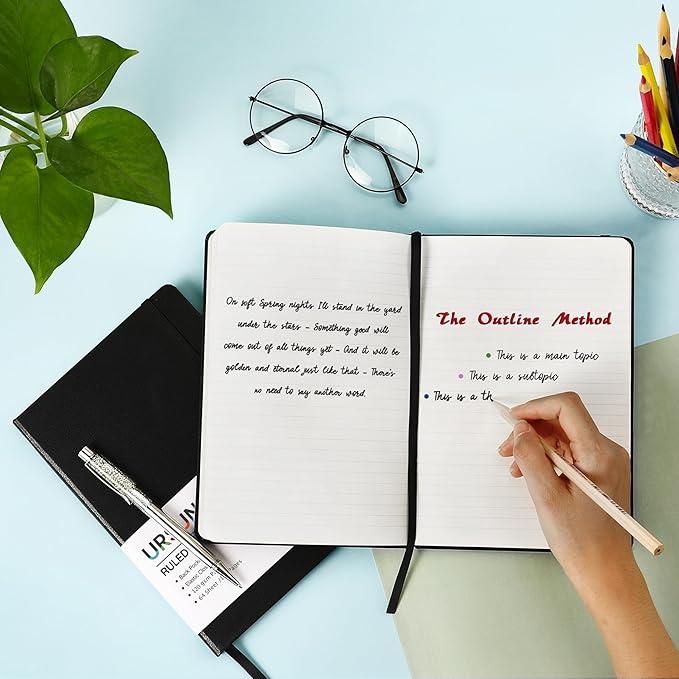 On soft Spring nights I'll stand in the yard
under the stars - Something good will
come out of all things yet - And it will be
golden and eternal just like that - There's
no need to say another word.
The Outline Method
This is a main topic
This is a subtopic
This is a th
RULED
Back Pock
Elastic Clos
120 gsm P
64 Sheet /